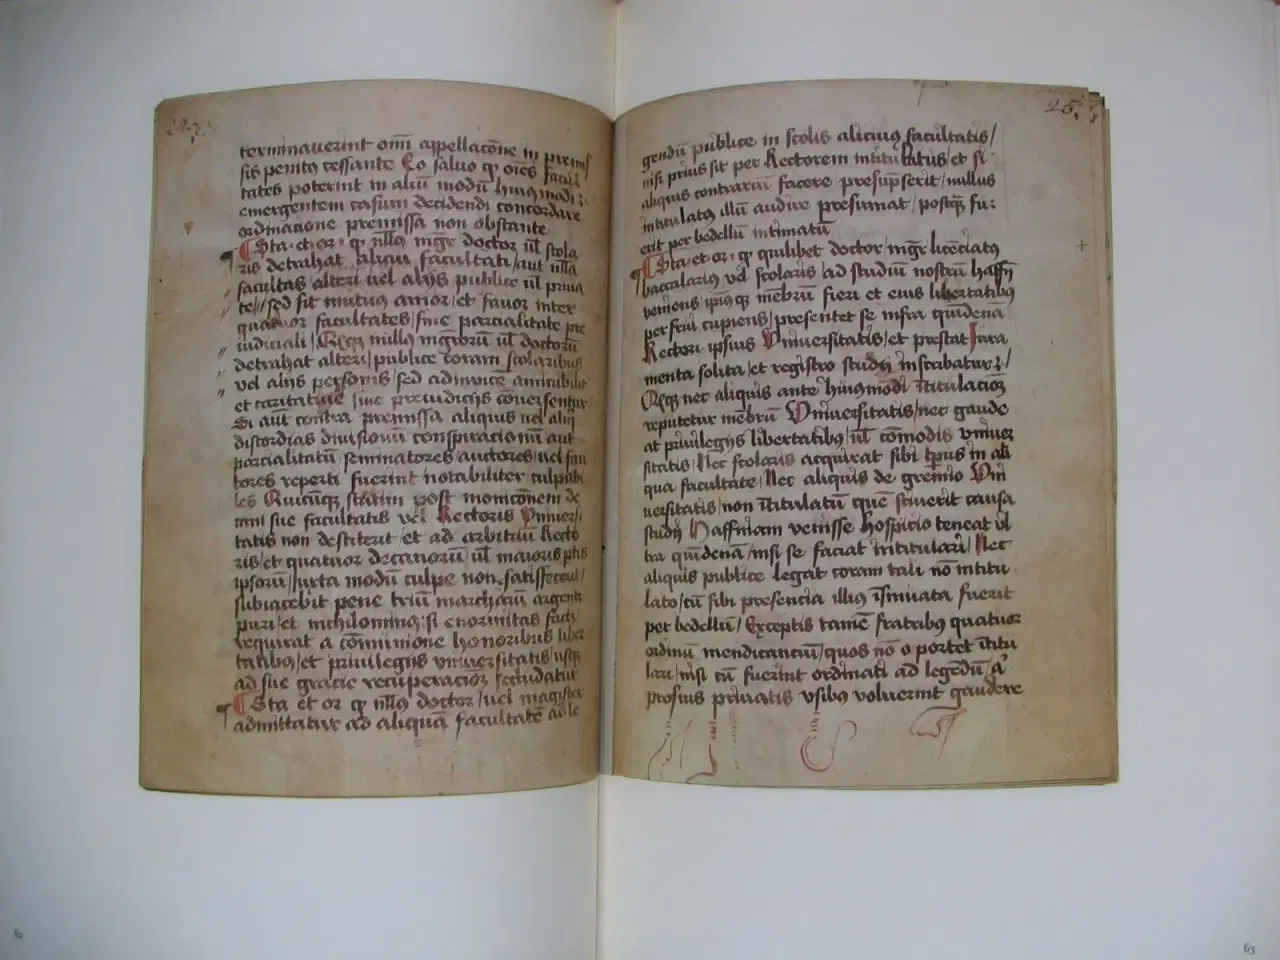 terminaverint omī appellacōne in premis
sis penitꝰ cessante Eo salvo qͥ oīes facul
tates poterint in aliū modū huiꝰmodi
emergentem casum decidendi concordare
ordinacione premissa non obstante
Sta · et · or · qͥ nllꝰ mgr doctor ūl scola
ris detrahat alicui facultati / aut nlla
facultas alteri vel alijs publice ūl priua
te // sed sit mutuus amor / et fauor inter
quatuor facultates / sine parcialitate pre
iudiciali / Qͥqꝫ nullꝰ mgrorū ūl doctorū
detrahat alteri / publice coram scolaribus
vel alijs personis / sed adinuicē amicabilit
et caritatiue sine preiudicijs cōuersentur
Si aūt contra premissa aliquis vel aliqͥ
discordias divisionū conspiracionū aut
parcialitatū seminatores / auctores / vel fau
tores reperti fuerint notabiliter culpabi
les Quicūqꝫ statim post monicōnem de
cani sue facultatis vel Rectoris Vniuersi
tatis non destiterit / et ad arbitriū Recto
ris / et quatuor decanorū / ūl maioris ptis
ipsorū / iuxta modū culpe non satisfecerit /
subiacebit pene triū marcharū argenti
puri / et nichilominꝰ / si enormitas facti
requirat a cōmunione honoribus liber
tatibꝰ / et privilegijs vniuersitatis / usqꝫ
ad sue gracie recuperacioꝫ secludatur
Sta et or qͥ nllꝰ doctor / vel magister
admittatur ad aliquā facultatē ad le
25
gendū publice in scolis alicuiꝰ facultatis /
nisi prius sit per Rectorem intitulatus et si
aliquis contrariū facere presūpserit / nullus
intitulatꝰ illū audire presumat / postqͣꝫ fu:
erit per bedellū intimatū
Sta · et or : qͥ quilibet doctor / mgr licēciatꝰ
baccalariꝰ vel scolaris / ad studiū nostrū haffñ
veniens / ipīusqꝫ mēbrū fieri et eius libertatibꝰ
perfrui cupiens / presentet se infra quīdenā
Rectori ipsius Vniuersitatis / et prestat Iura
menta solita / et registro studij inscrabatur /
Qͥqꝫ nec aliquis ante huiusmōdi ītitulacioꝫ
reputetur mēbrū Vniuersitatis / nec gaude
at priuilegijs libertatibꝰ / ūl cōmodis vniuer
sitatis / Nec scolaris acquirat sibi tp̄us in ali
qua facultate / Nec aliquis de gremio Vni
uersitatis / non ītitulatū quē sciuerit causa
studij Haffniam venisse hospicio teneat ūl
tra quīdenā / nisi se faciat intitulari / Nec
aliquis publice legat coram tali nō intitu
lato / cū sibi presencia illius īsinuata fuerit
per bedellū / Exceptis tamē fratribꝰ quatuor
ordinū mendicanciū / quos nō oportet ītitu
lari / nisi cū fuerint ordinati ad legēdū / aͭ
prosius priuatis vsibus voluerint gaudere
62
63